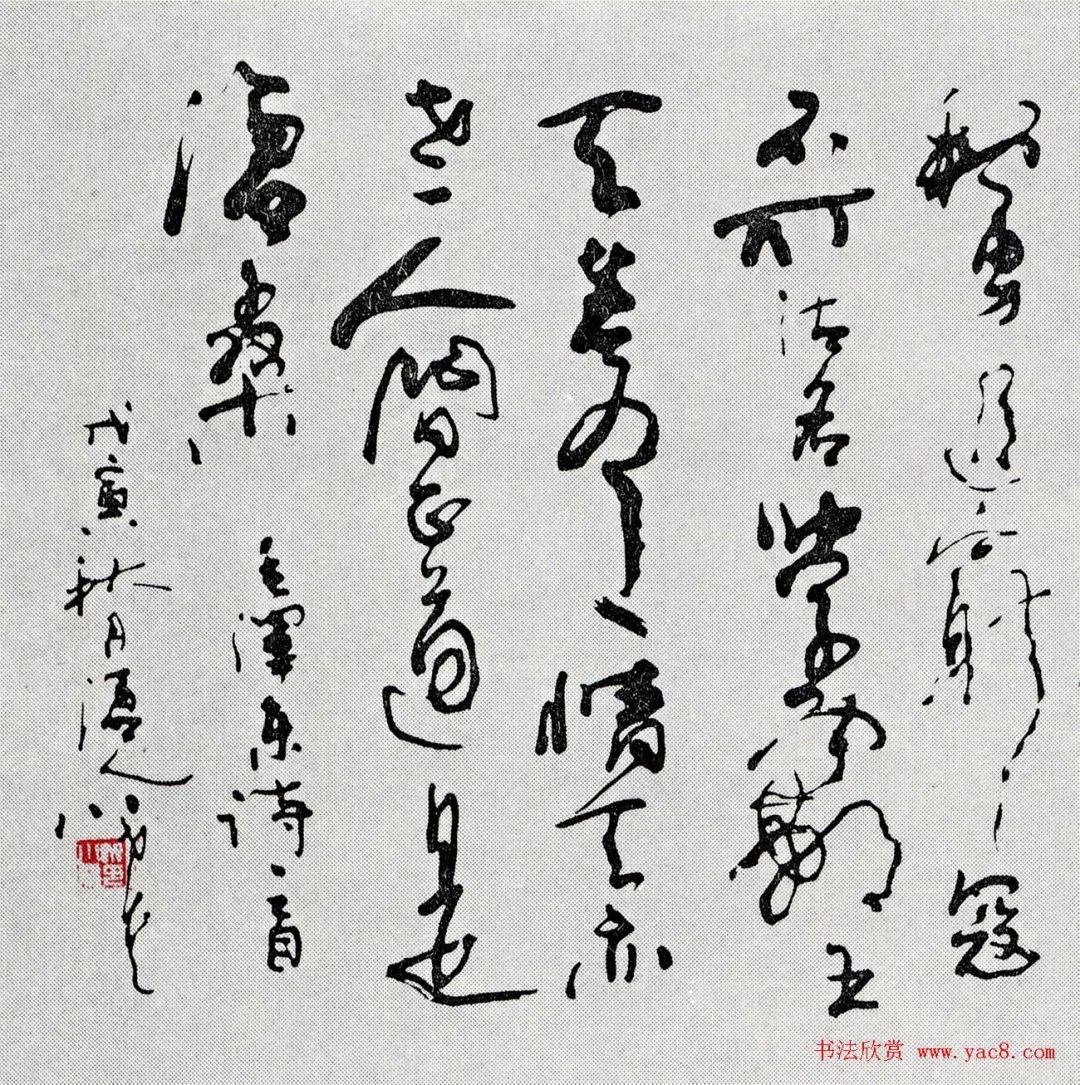 剩勇追窮寇
不可沽名學霸王
天若有情天亦
老人間正道是
滄桑
毛澤東詩一首
戊寅秋月
书法欣赏 www.yac8.com